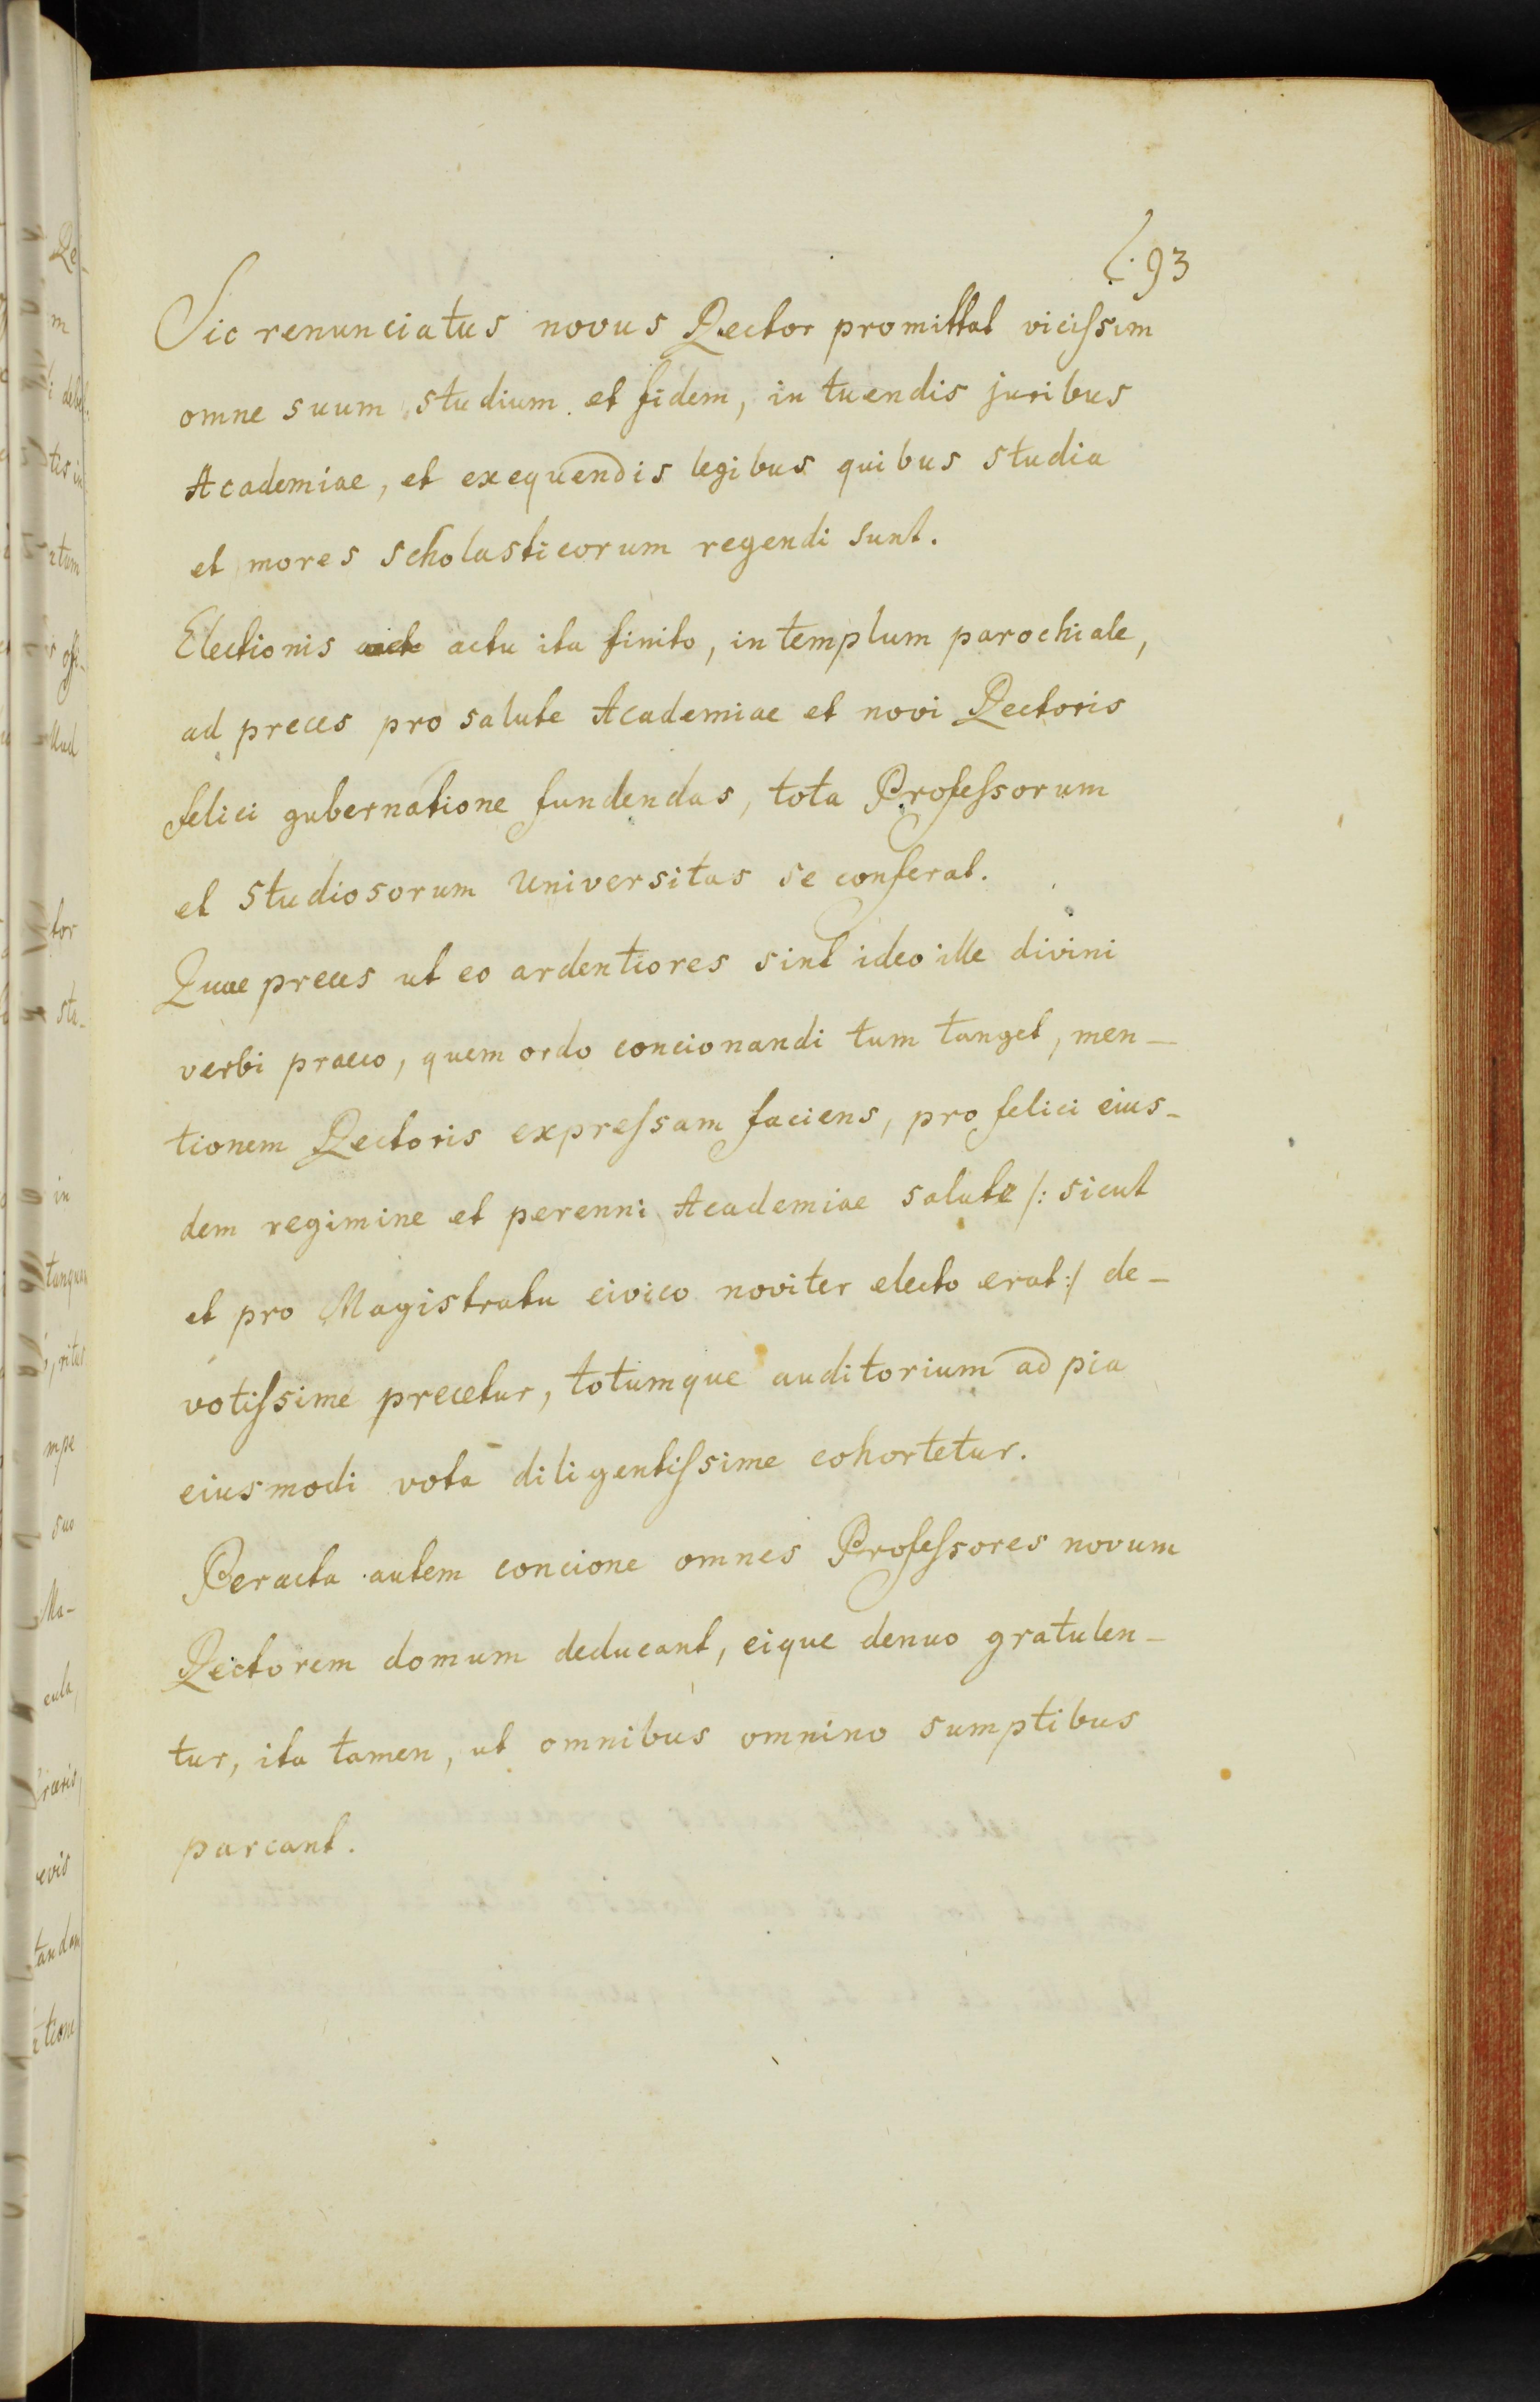 93
Sic renunciatus novus Rector promittat vicissim
omne suum studium et fidem, in tuendis juribus
Academiae, et exequendis legibus quibus studia
et mores scholasticorum regendi sunt.
Electionis actu ita finito, in templum parochiale,
ad preces pro salute Academiae et novi Rectoris
felici gubernatione fundendas, tota Professorum
et studiosorum Universitas se conferat.
Quae preces ut eo ardentiores sint ideo ille divini
verbi praeco, quem ordo concionandi tum tanget, men-
tionem Rectoris expressam faciens, pro felici eius-
dem regimine et perenni Academiae salute /: sicut
et pro Magistratu civico noviter electo erat :/ de-
votissime precetur, totumque auditorium ad pia
eiusmodi vota diligentissime cohortetur.
Peracta autem concione omnes Professores novum
Rectorem domum deducant, eique denuo gratulen-
tur, ita tamen, ut omnibus omnino sumptibus
parcant.